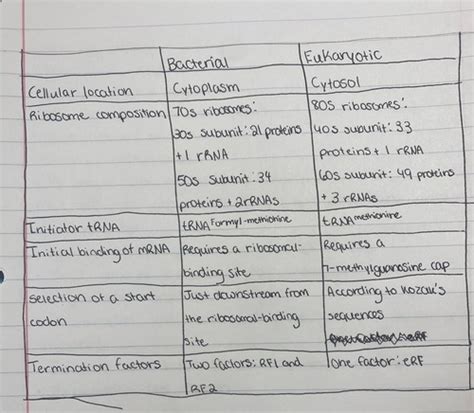 Bacterial Eukaryotic
Cellular location Cytoplasm Cytosol
Ribosome composition 70s ribosomes: 80s ribosomes:
30s subunit: 21 proteins 40s subunit: 33
+ 1 rRNA proteins + 1 rRNA
50s subunit: 34 60s subunit: 49 proteins
proteins + 2rRNAs + 3 rRNAs
Initiator tRNA tRNA Formyl-methionine tRNA methionine
Initial binding of mRNA Requires a ribosomal- Requires a
binding site 7-methylguanosine cap
Selection of a start Just downstream from According to Kozak's
codon the ribosomal-binding sequences
site
Termination factors Two factors: RF1 and One factor: eRF
RF2